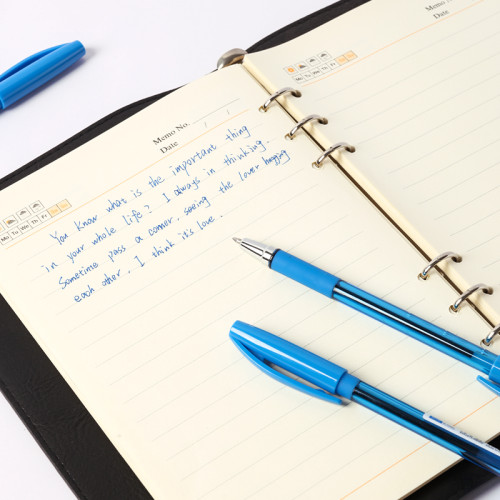 Memo No.
Date
Mo Tu We Th Fr
You know what is the important thing
in your whole life? I always in thinking.
Sometime pass a corner, seeing the lover hugging
each other. I think it's love.
Memo No.
Date
Mo Tu We Th Fr